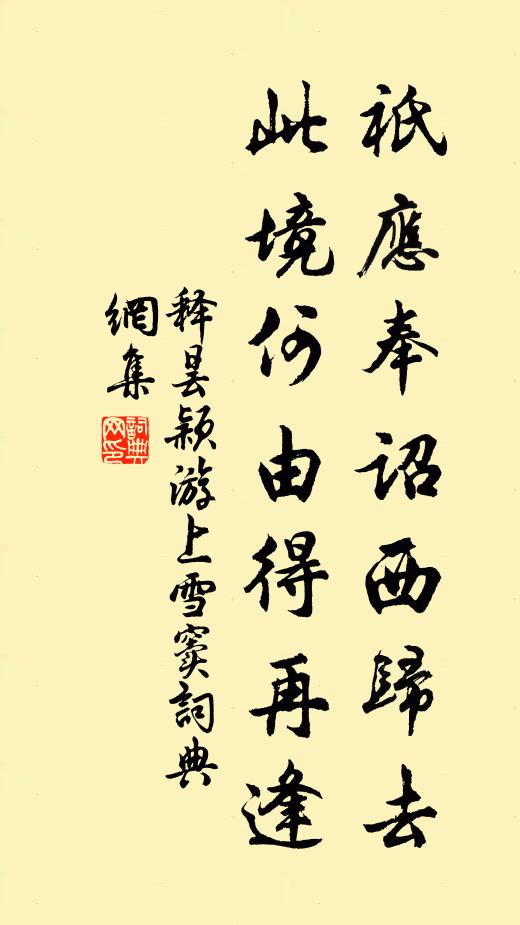 祇應奉詔西歸去
此境何由得再逢
释曇颖游上雪竇詞典
網集
詞典
网印